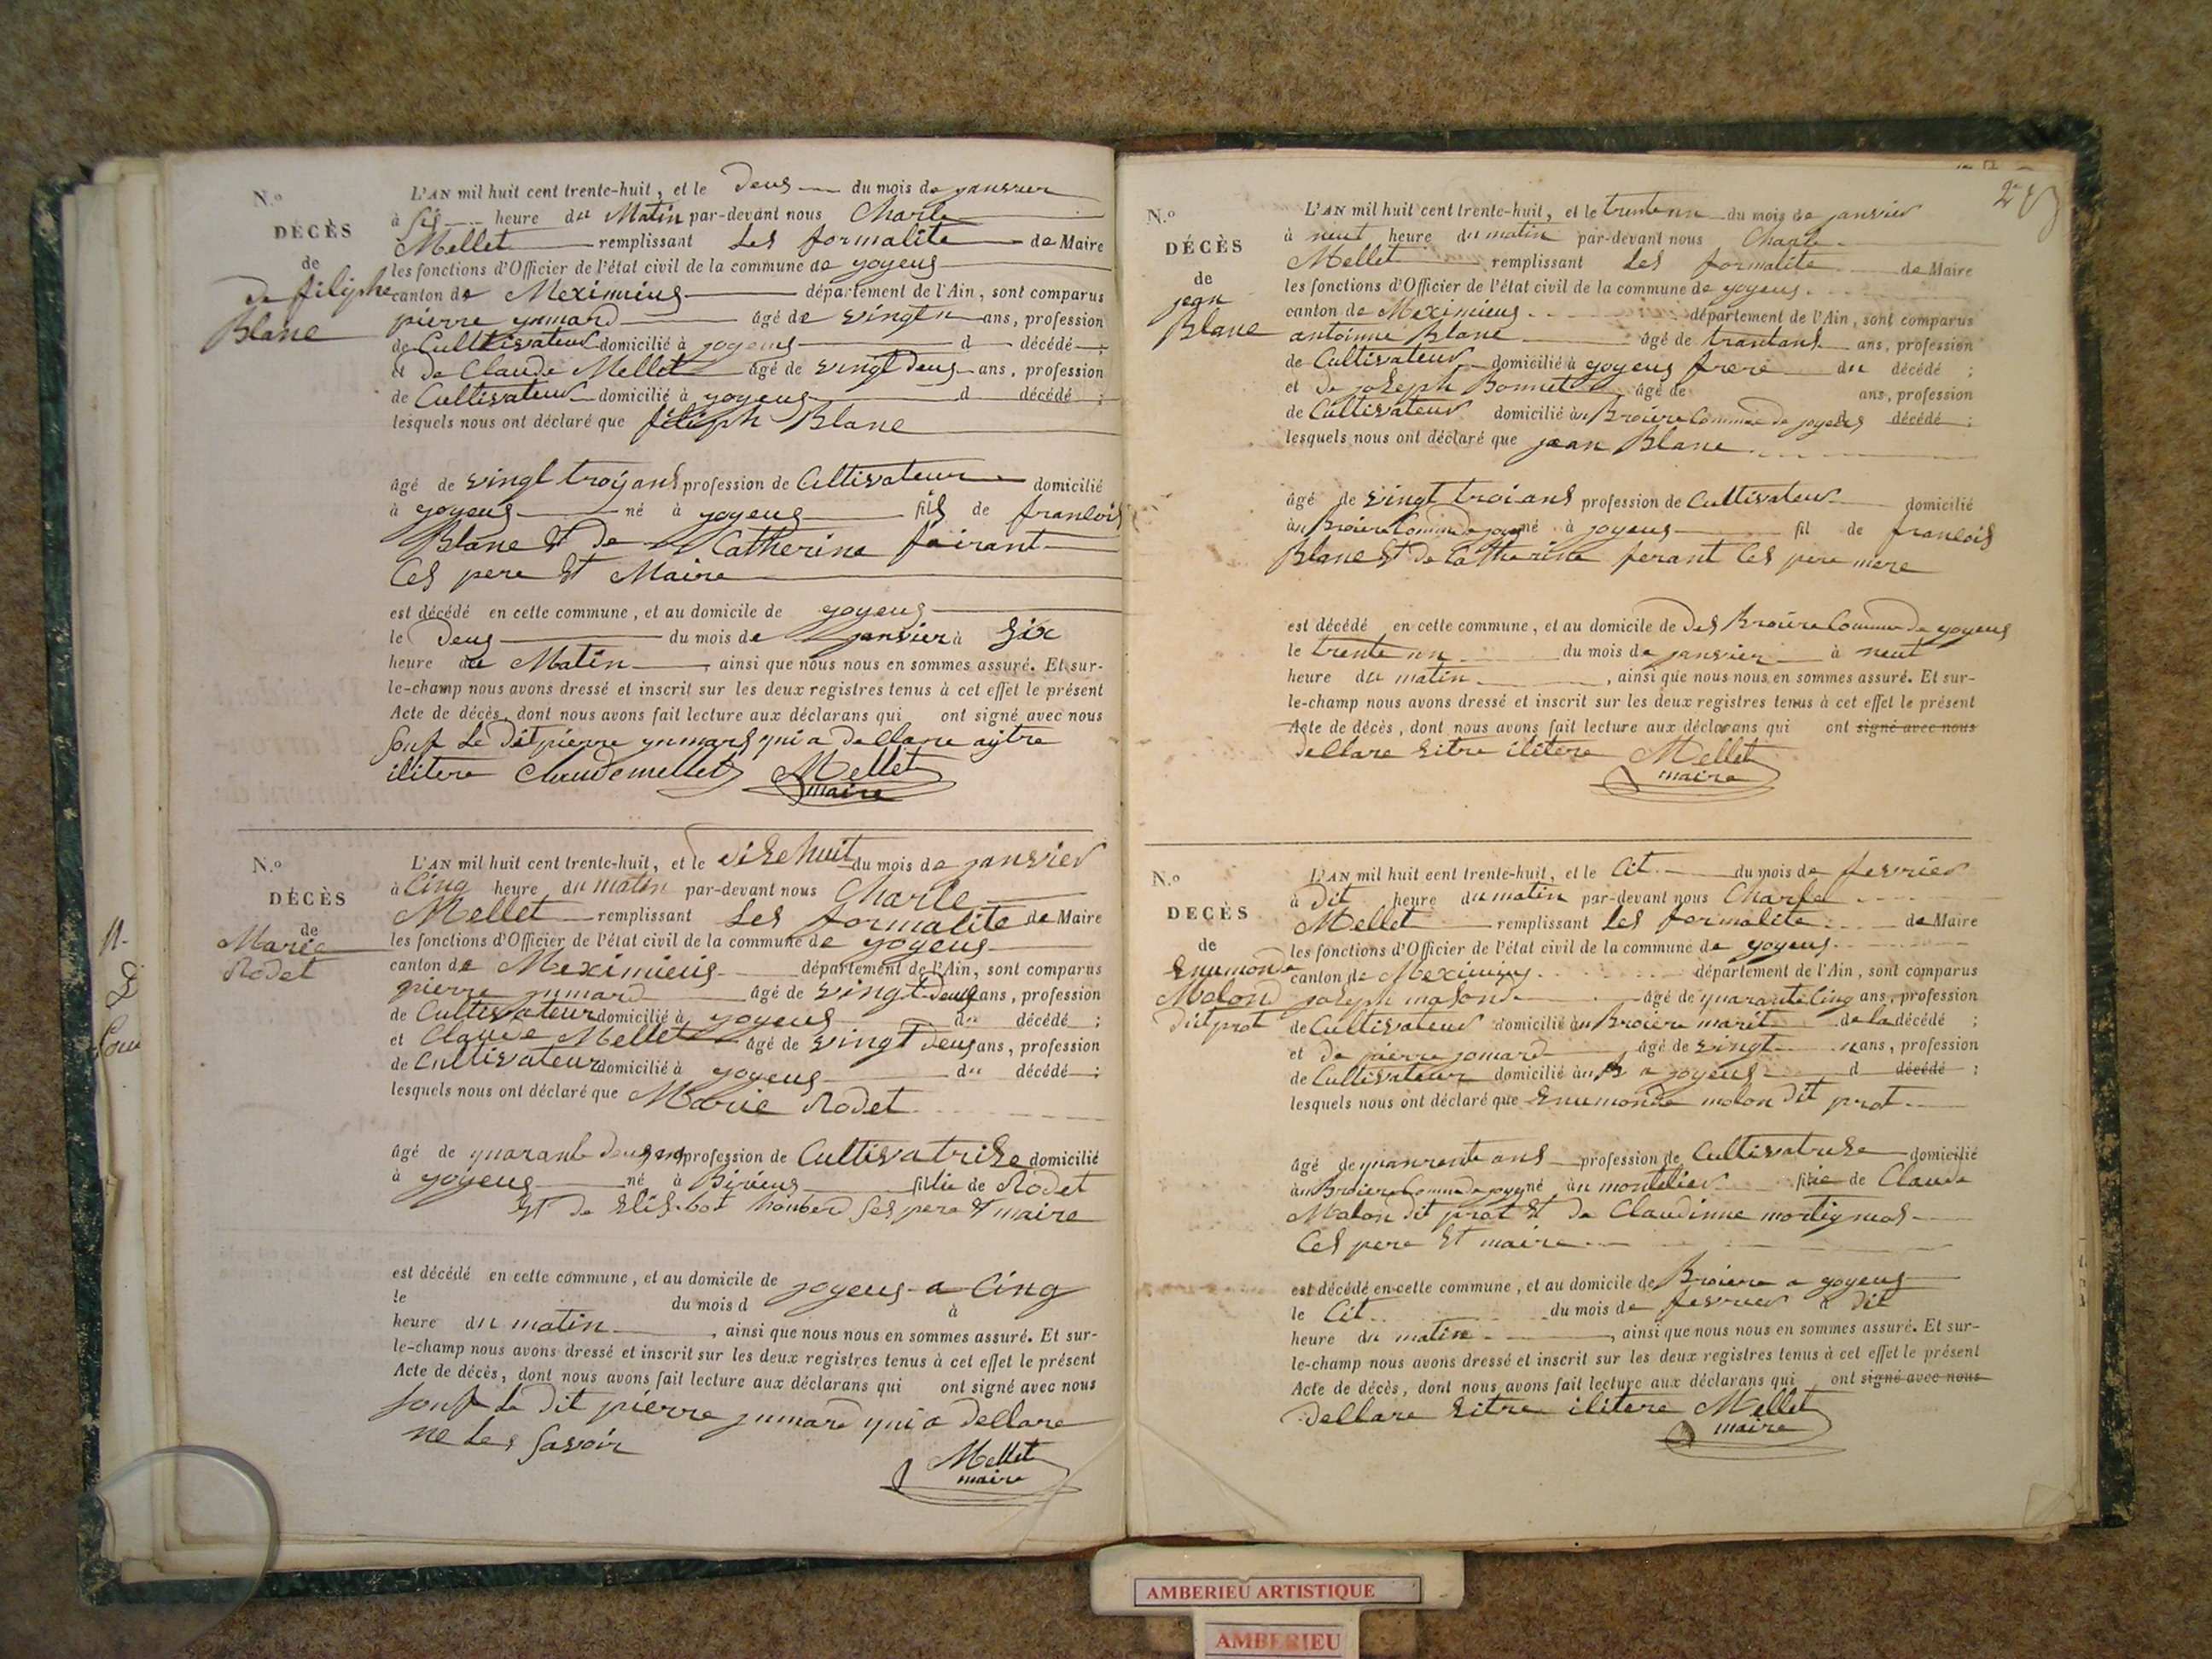 N.º
DÉCÈS
de
de filiphe
Blanc
L'AN mil huit cent trente-huit, et le deus du mois de janvier
à sis heure du Matin par-devant nous Charle
Mellet remplissant Les formalite de Maire
les fonctions d'Officier de l'état civil de la commune de joyeus
canton de Meximieus département de l'Ain, sont comparus
pierre jumard âgé de vingt un ans, profession
de Cultivateur domicilié à joyeus d décédé ;
et de Claude Mellet âgé de vingt deus ans, profession
de Cultivateur domicilié à joyeus d décédé ;
lesquels nous ont déclaré que filiph Blanc
âgé de vingt troij ans profession de Cultivateur domicilié
à joyeus né à joyeus fils de francois
Blanc et de Catherine fairant
Ces pere et Maire
est décédé en cette commune, et au domicile de joyeus
le deus du mois de janvier à six
heure du Matin, ainsi que nous nous en sommes assuré. Et sur-
le-champ nous avons dressé et inscrit sur les deux registres tenus à cet effet le présent
Acte de décès, dont nous avons fait lecture aux déclarans qui ont signé avec nous
souf le dit pierre jumard qui a dellare aitre
ilitere Claude mellet Mellet
maire
N.º
DÉCÈS
de
Marie
Rodet
L'AN mil huit cent trente-huit, et le dise huit du mois de janvier
à Cinq heure du matin par-devant nous Charle
Mellet remplissant Les formalite de Maire
les fonctions d'Officier de l'état civil de la commune de joyeus
canton de Meximieus département de l'Ain, sont comparus
pierre jumard âgé de vingt deus ans, profession
de Cultivateur domicilié à joyeus du décédé ;
et Claude Mellet âgé de vingt deus ans, profession
de Cultivateur domicilié à joyeus du décédé ;
lesquels nous ont déclaré que Marie Rodet
âgé de quarante deus ans profession de Cultivatrise domicilié
à joyeus né à Birieus fillie de Rodet
et de ses pere et maire
est décédé en cette commune, et au domicile de joyeus a Cinq
le du mois d à
heure du matin, ainsi que nous nous en sommes assuré. Et sur-
le-champ nous avons dressé et inscrit sur les deux registres tenus à cet effet le présent
Acte de décès, dont nous avons fait lecture aux déclarans qui ont signé avec nous
souf le dit pierre jumard qui a dellare
ne les savoir
Mellet
maire
N.º
DÉCÈS
de
jean
Blanc
L'AN mil huit cent trente-huit, et le trente un du mois de janvier
à neuf heure du matin par-devant nous Charle
Mellet remplissant Les formalite de Maire
les fonctions d'Officier de l'état civil de la commune de joyeus
canton de Meximieus département de l'Ain, sont comparus
antoinne Blanc âgé de trantans ans, profession
de Cultivateur domicilié à joyeus frere du décédé ;
et de joseph Bonnet âgé de ans, profession
de Cultivateur domicilié au Broiere Commune de joyeus décédé ;
lesquels nous ont déclaré que jean Blanc
âgé de vingt trois ans profession de Cultivateur domicilié
au Broiere Commune de joyeus né à joyeus fil de francois
Blanc et de Catherine ferant Ces pere mere
est décédé en cette commune, et au domicile de des Broiere Commune de joyeus
le trente un du mois de janvier à neuf
heure du matin, ainsi que nous nous en sommes assuré. Et sur-
le-champ nous avons dressé et inscrit sur les deux registres tenus à cet effet le présent
Acte de décès, dont nous avons fait lecture aux déclarans qui ont signé avec nous
dellare eitre ilitere Mellet
maire
N.º
DECÈS
de
Enumonde
Molond
dit prot
L'AN mil huit cent trente-huit, et le Cit du mois de fevrier
à dit heure du matin par-devant nous Charle
Mellet remplissant Les formalite de Maire
les fonctions d'Officier de l'état civil de la commune de joyeus
canton de Meximieus département de l'Ain, sont comparus
joseph âgé de quarante Cinq ans, profession
de Cultivateur domicilié au Broiere marit de la décédé ;
et de pierre jomard âgé de vingt un ans, profession
de Cultivateur domicilié à a joyeus d décédé ;
lesquels nous ont déclaré que Enumonde molon dit prot
âgé de quanrente ans profession de Cultivatrise domicilié
au Broiere Commune de joyeus né à montelier fillie de Claude
Malon dit prot et de Claudinne
Ces pere et maire
est décédé en cette commune, et au domicile de Broiere a joyeus
le Cit du mois de fevrier à dit
heure du matin, ainsi que nous nous en sommes assuré. Et sur-
le-champ nous avons dressé et inscrit sur les deux registres tenus à cet effet le présent
Acte de décès, dont nous avons fait lecture aux déclarans qui ont signé avec nous
dellare eitre ilitere Mellet
maire
AMBERIEU ARTISTIQUE
AMBERIEU